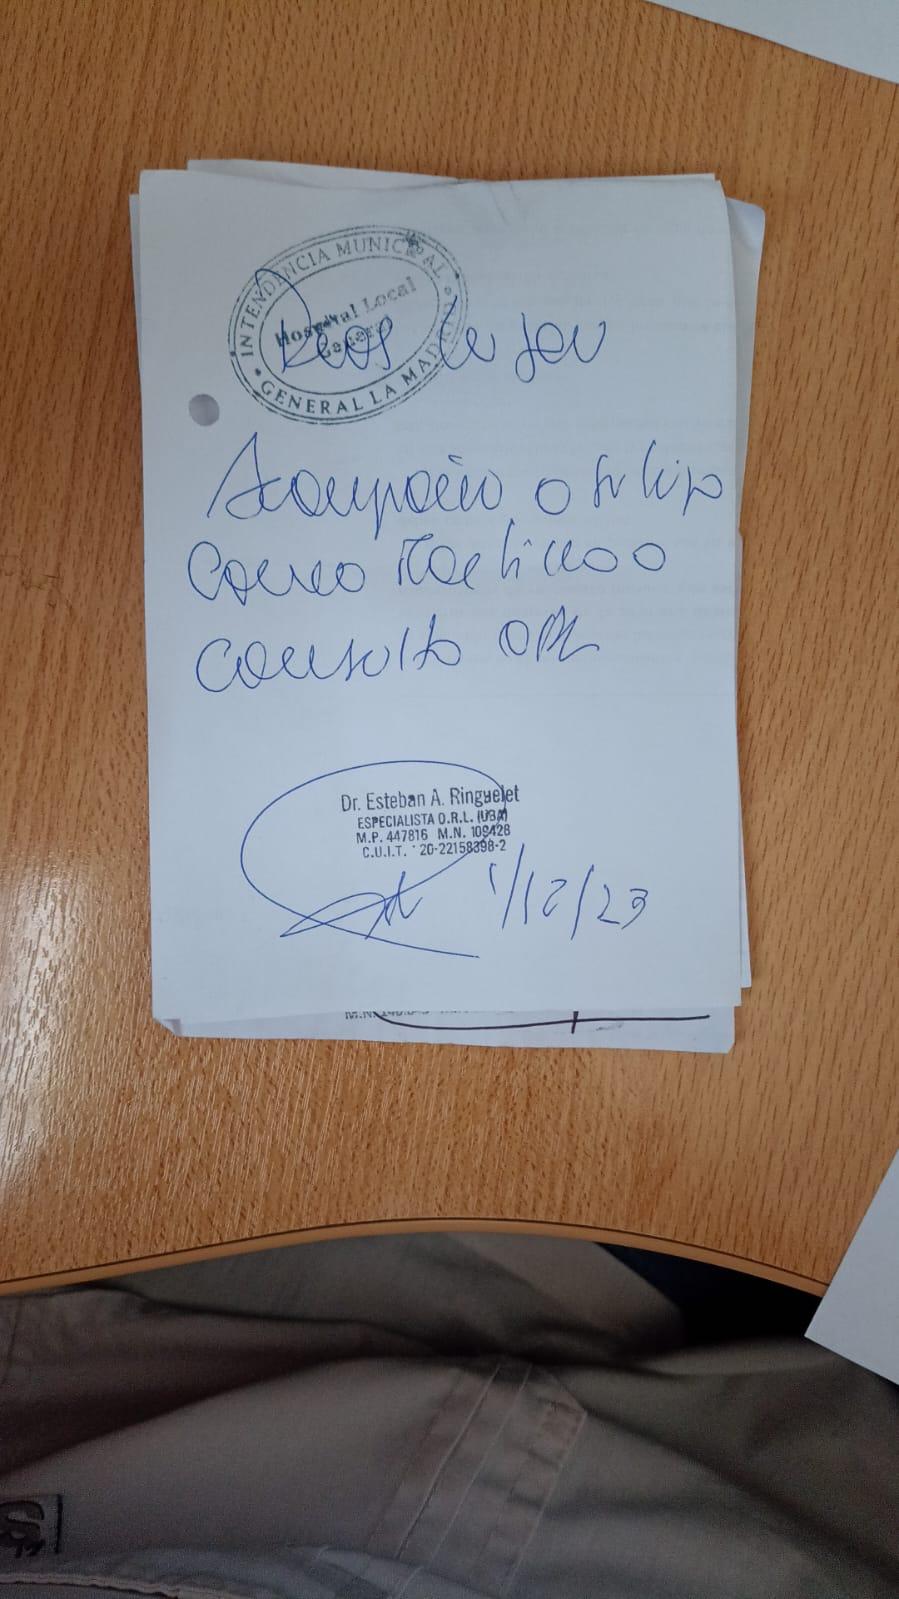 INTENDENCIA MUNICIPAL
Hospital Local
General
GENERAL LA MADRID
Acompaño a su hijo
a
consulta ORL
Dr. Esteban A. Ringuelet
ESPECIALISTA O.R.L. (UBA)
M.P. 447816 M.N. 109428
C.U.I.T. 20-22158398-2
1/12/23